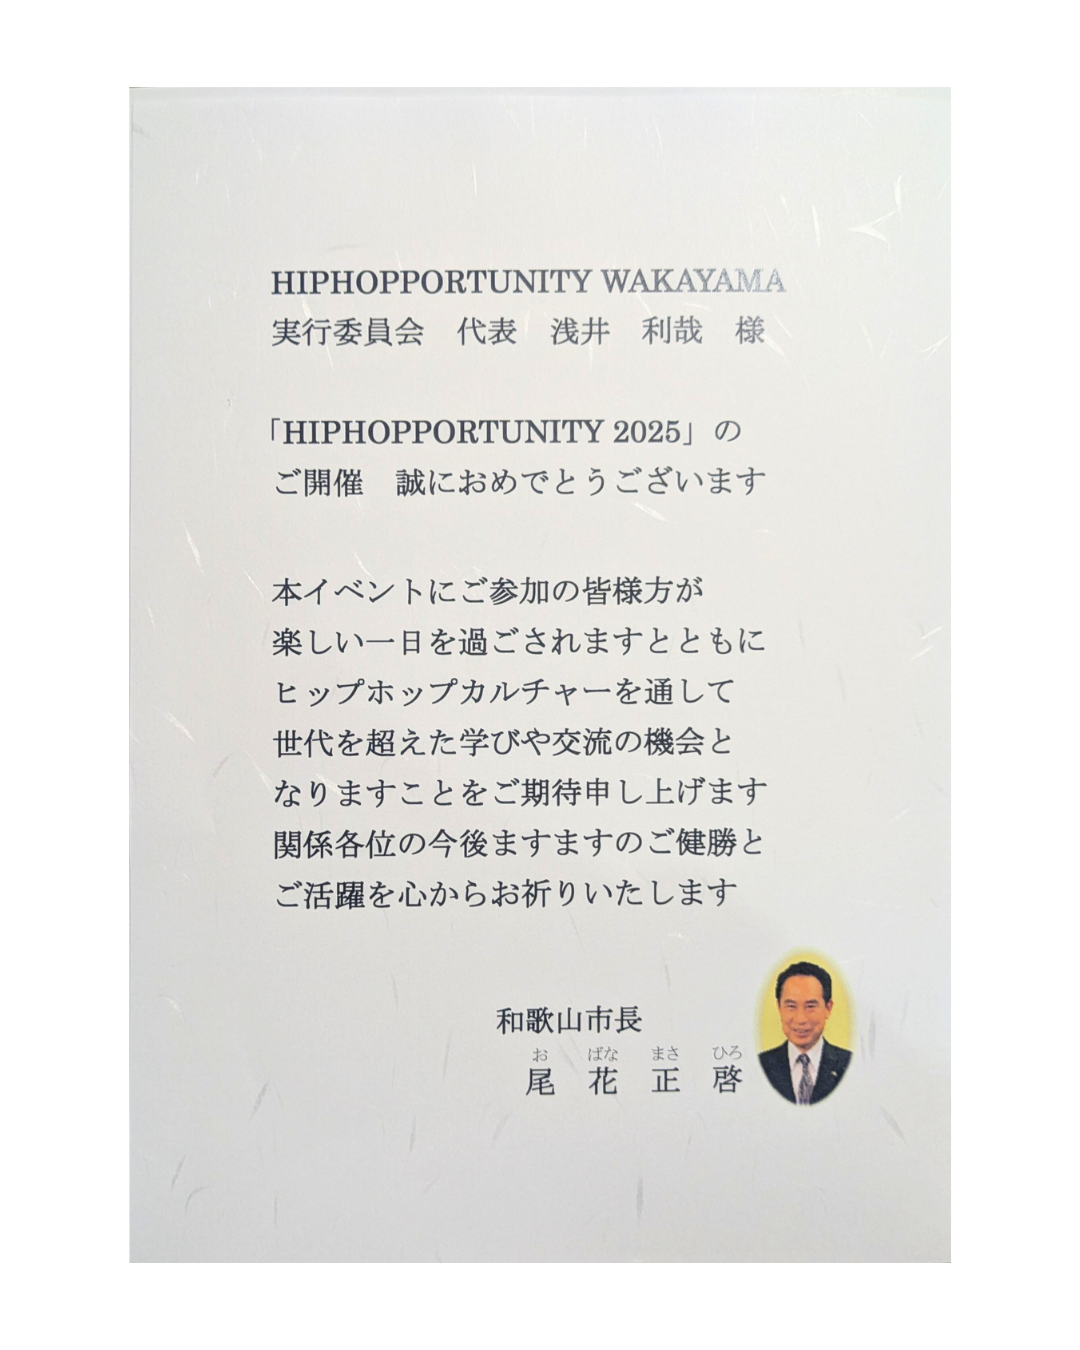 HIPHOPPORTUNITY WAKAYAMA
実行委員会　代表　浅井　利哉　様
「HIPHOPPORTUNITY 2025」の
ご開催　誠におめでとうございます
本イベントにご参加の皆様方が
楽しい一日を過ごされますとともに
ヒップホップカルチャーを通して
世代を超えた学びや交流の機会と
なりますことをご期待申し上げます
関係各位の今後ますますのご健勝と
ご活躍を心からお祈りいたします
和歌山市長
お　ばな　まさ　ひろ
尾　花　正　啓